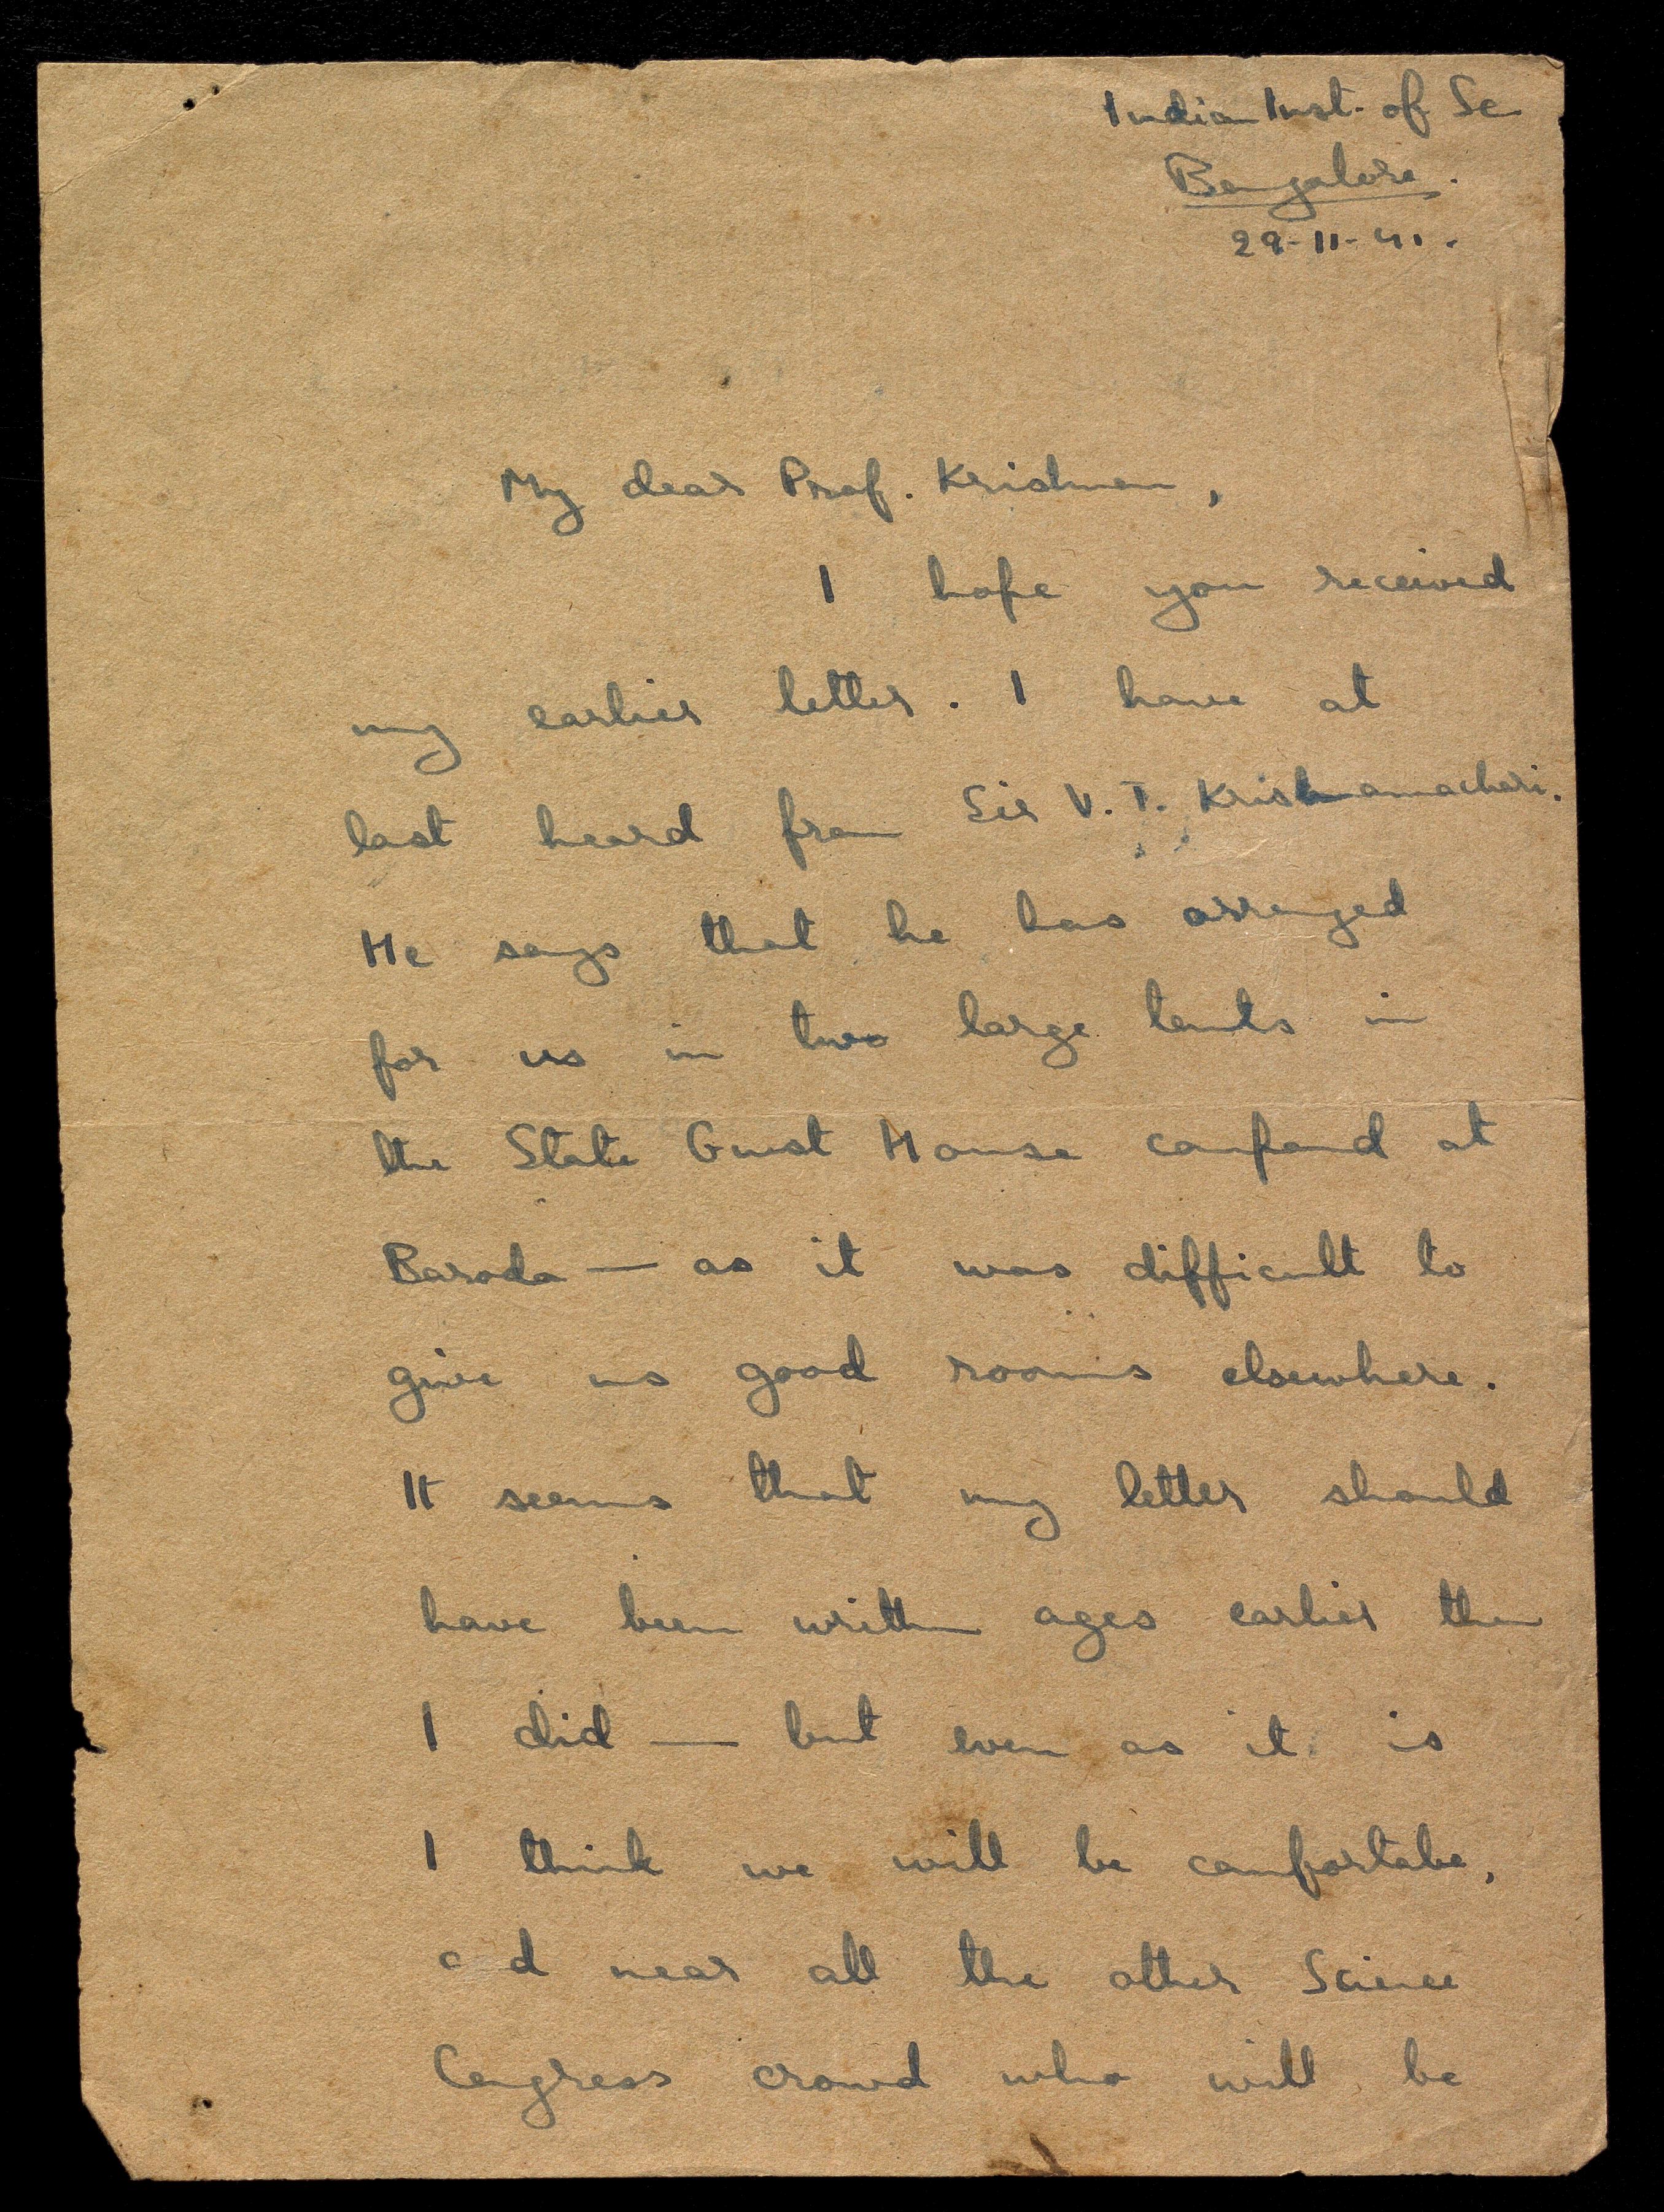 Indian Inst. of Sc
Bangalore.
29-11-41.
My dear Prof. Krishnan,
I hope you received
my earlier letter. I have at
last heard from Sir V. T. Krishnamachari.
He says that he has arranged
for us in two large tents in
the State Guest House compound at
Baroda — as it was difficult to
give us good rooms elsewhere.
It seems that my letter should
have been written ages earlier than
I did — but even as it is
I think we will be comfortabe,
and near all the other Science
Congress crowd who will be